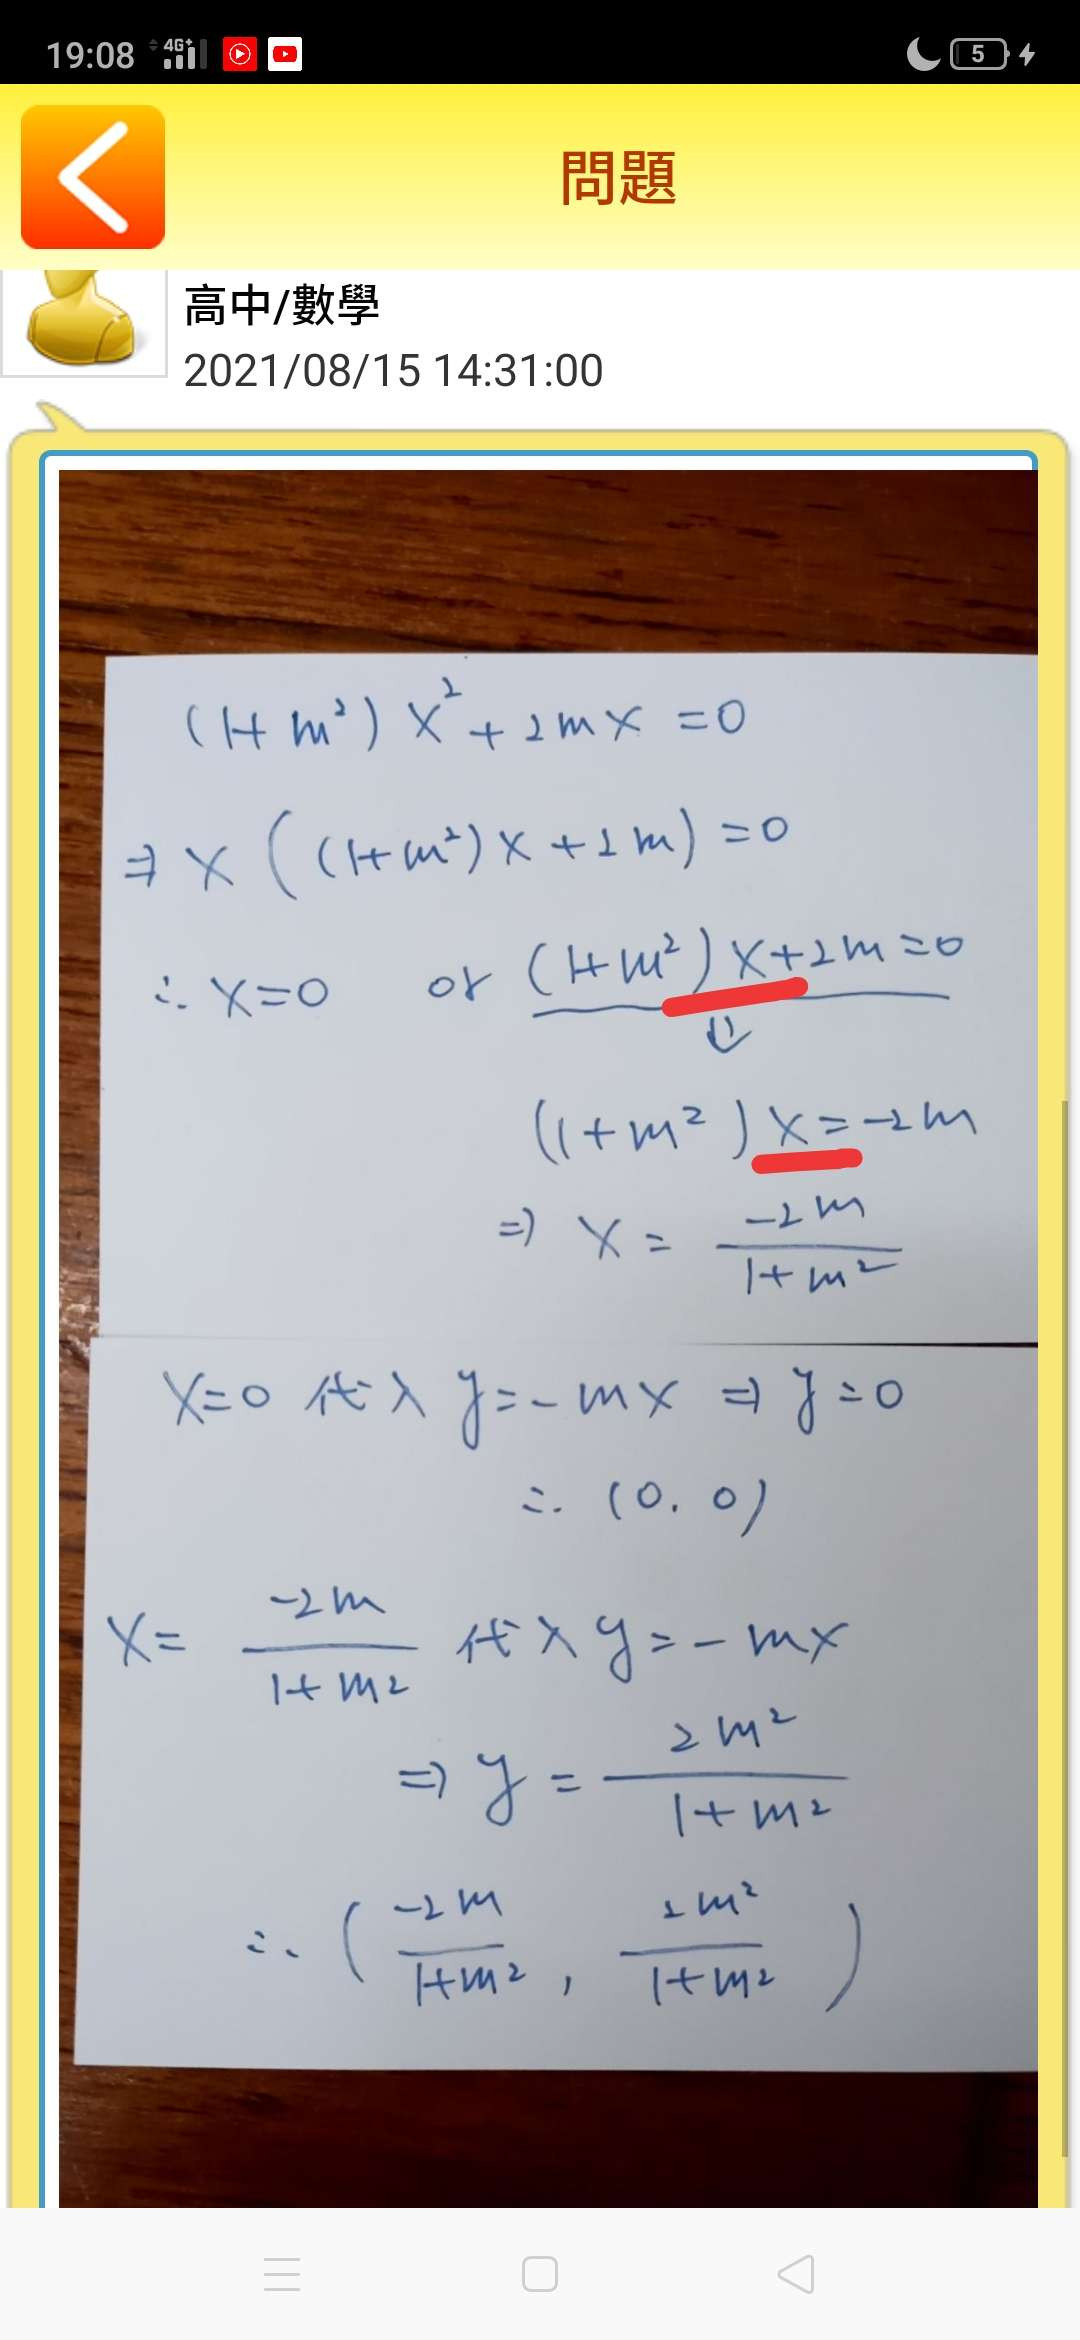 19:08 4G+ 5
問題
高中/數學
2021/08/15 14:31:00
(1+m²)x²+2mx=0
⇒ x((1+m²)x+2m)=0
∴ x=0 or (1+m²)x+2m=0
⇓
(1+m²)x=-2m
⇒ x = -2m/1+m²
x=0 代入 y=-mx ⇒ y=0
∴ (0, 0)
x= -2m/1+m² 代入 y=-mx
⇒ y = 2m²/1+m²
∴ (-2m/1+m², 2m²/1+m²)